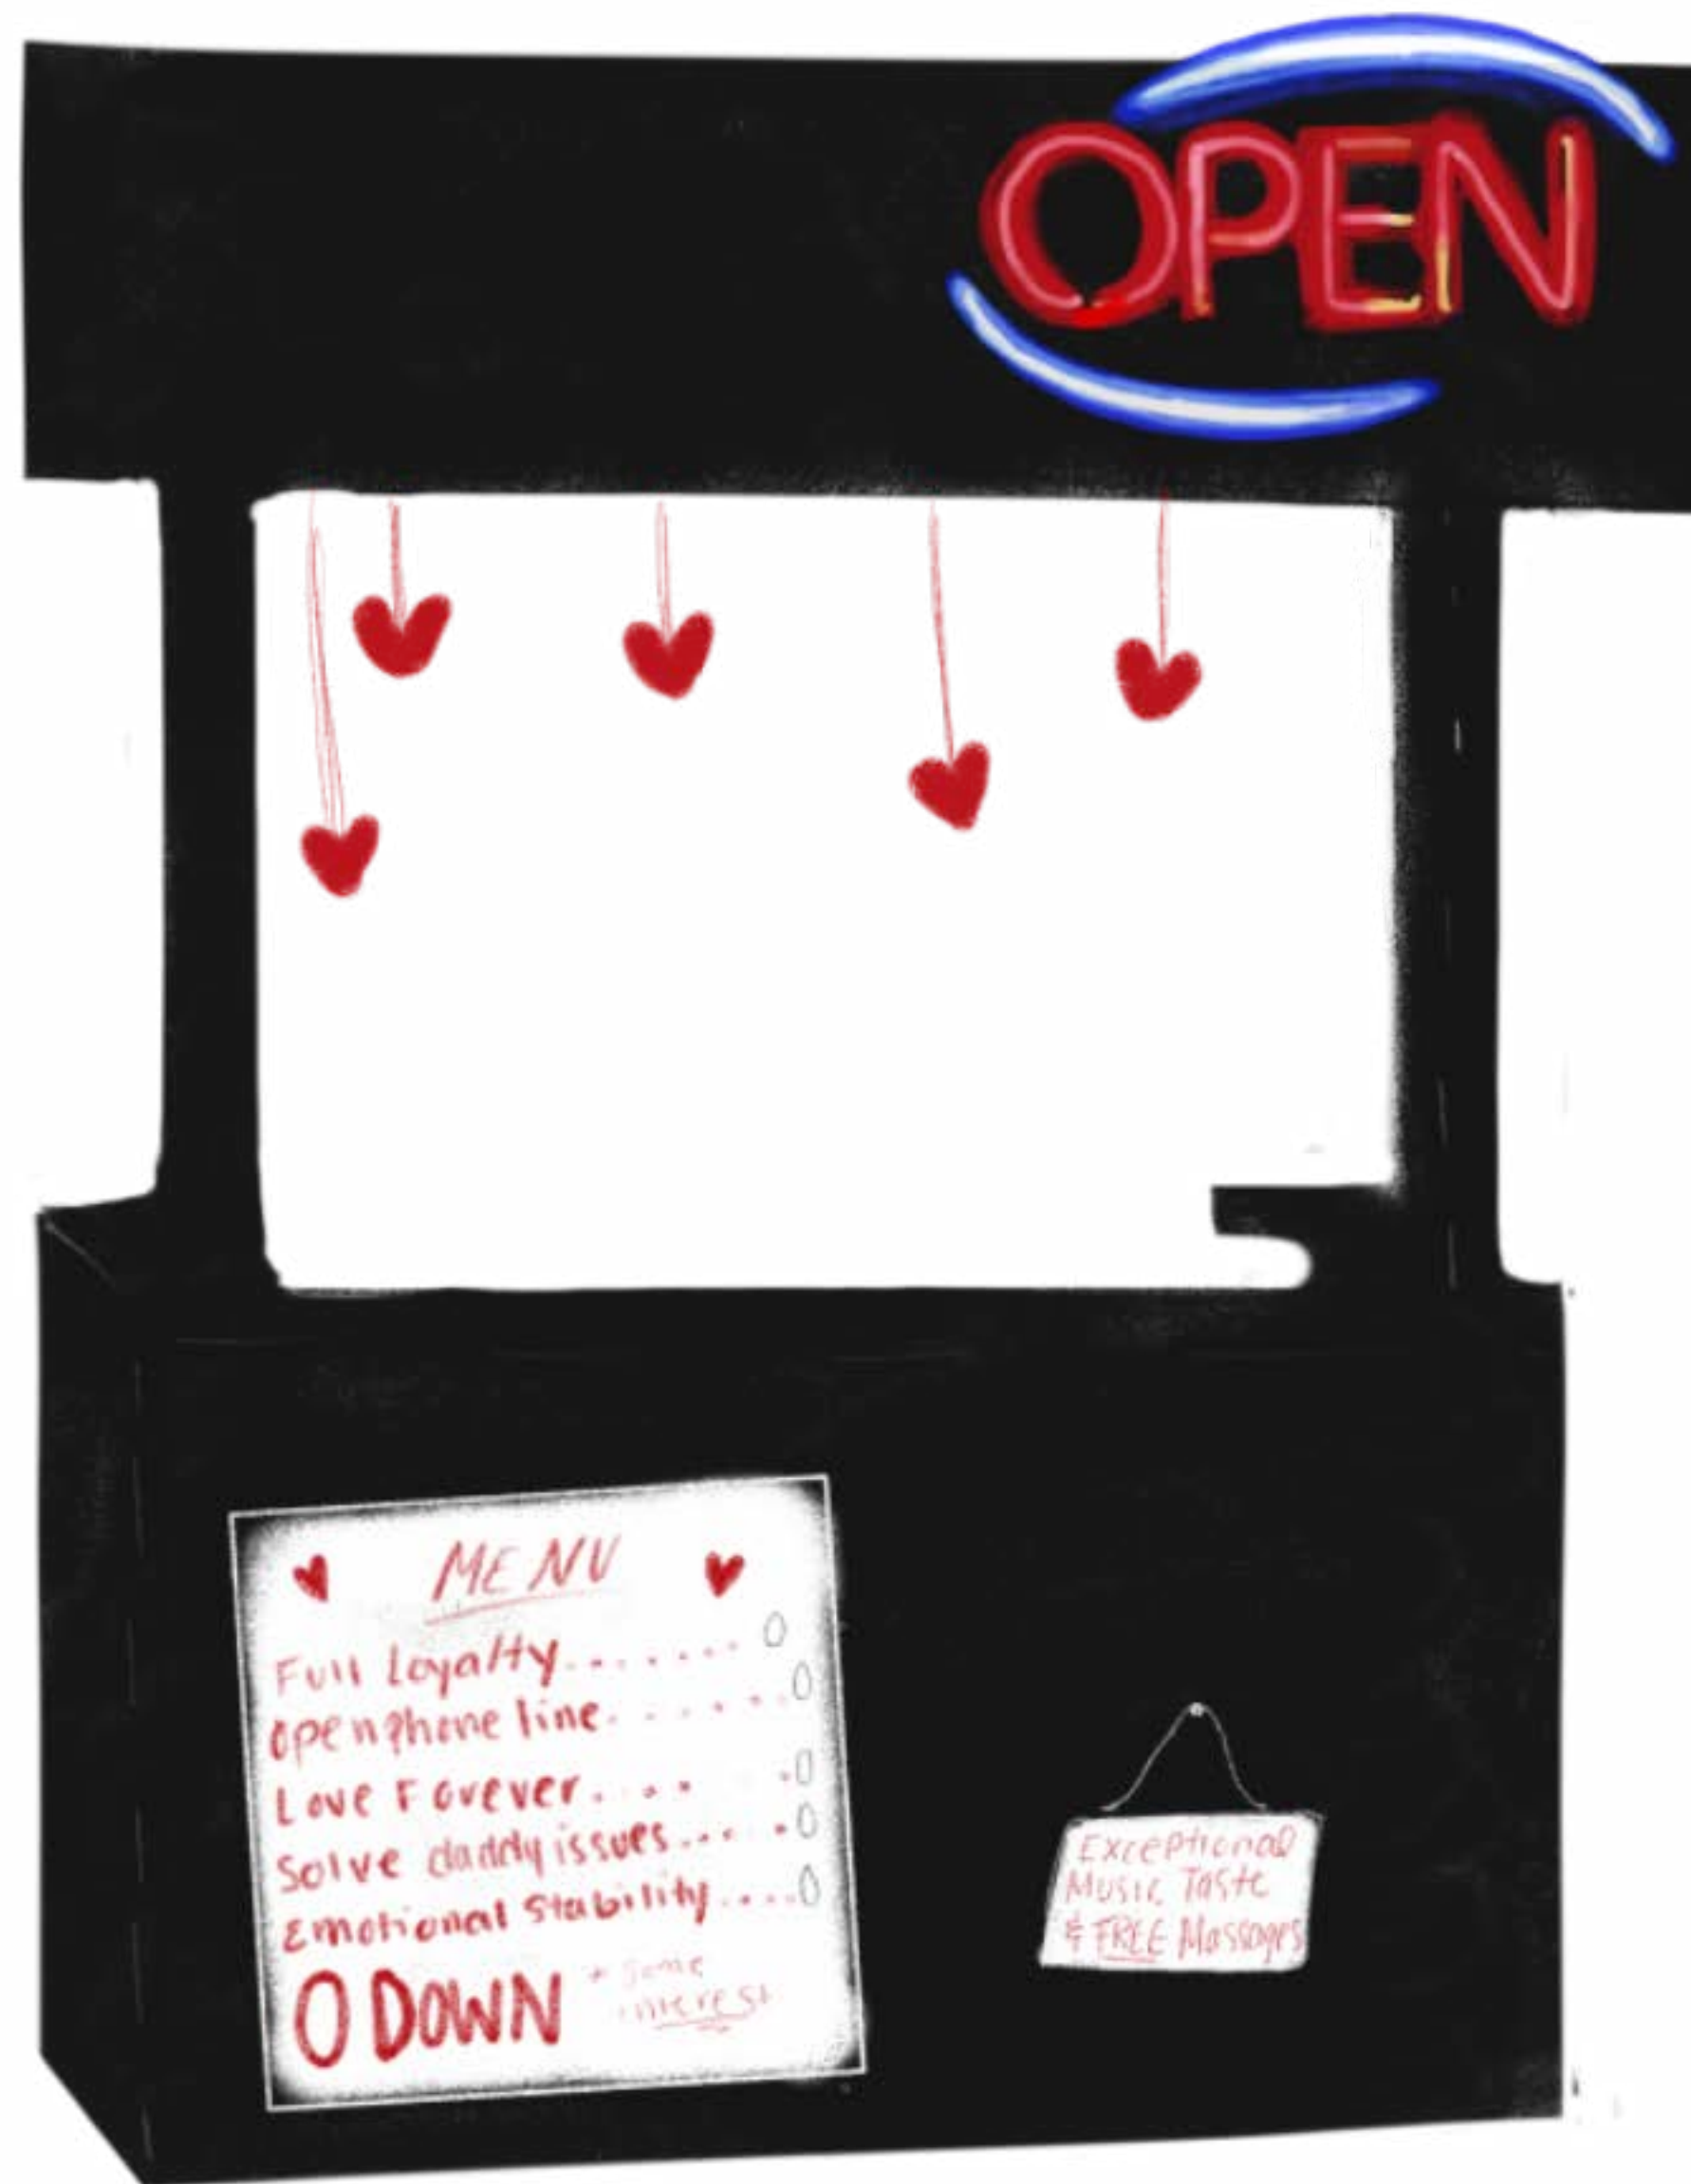 OPEN
MENU
Full Loyalty....... 0
open phone line....... 0
Love Forever.... .0
Solve daddy issues.... .0
Emotional Stability.....0
0 DOWN + some
interest
Exceptional
Music Taste
& FREE Massages